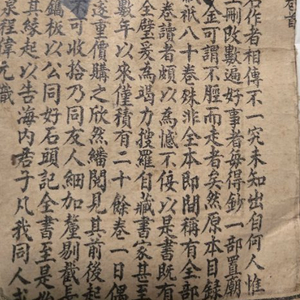 名作者相傳不一究未知出自何人惟
刪改數遍好事者每得鈔一部置廟
金可謂不脛而走者矣然原本目錄
祇八十卷殊非全本即間稱有全部
卷讀者頗以為憾不佞以是書既有
全璧爰為竭力搜羅自藏書家甚至
數年以來僅積有二十餘卷一日偶
遂重價購之欣然繙閱見其前後起
不可收拾乃同友人細加釐剔截長
鐫板以公同好石頭記全書至是始
其緣起以告海內君子凡我同人或
泉程偉元識